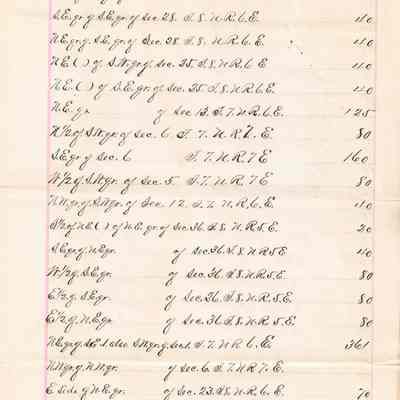 S.E.qr of S.E.qr of Sec. 28. T. 8. N. R. 6. E. 40
N.E.qr of S.E.qr of Sec. 28 T. 8. N. R. 6. E. 40
N.E. ( ) of S.W.qr of Sec. 35. T. 8. N. R. 6 E 40
N.E. ( ) of S.E.qr of Sec. 35. T. 8. N. R. 6 E. 40
N.E. qr of Sec. 13. T. 7. N. R. 6. E. 125
N 1/2 of S.W.qr of Sec. 6 T. 7. N. R. 7. E. 80
S.E.qr of Sec. 6 T. 7. N. R. 7 E 160
W 1/2 of S.W.qr of Sec. 5. T. 7. N. R. 7 E 80
N.W.qr of S.W.qr of Sec. 12. T. 7. N. R. 6. E. 40
S 1/2 of N.E. ( ) of N.E.qr of Sec. 36. T. 8. N. R. 5. E. 20
S.E.qr of N.E.qr of Sec. 36. T. 8. N. R. 5 E 40
W 1/2 of S.E.qr of Sec. 36. T. 8. N. R. 5. E. 80
E 1/2 of S.E.qr of Sec. 36. T. 8. N. R. 5. E. 80
E 1/2 of N.E.qr of Sec. 36. T. 8. N. R. 5. E. 80
also S.W.qr of Sec. 1. T. 7. N. R. 6. E. 361
N.W.qr of N.W.qr of Sec. 6. T. 7. N. R. 7. E.
E Side of N.E.qr of Sec. 23. T. 8. N. R. 6. E. 70